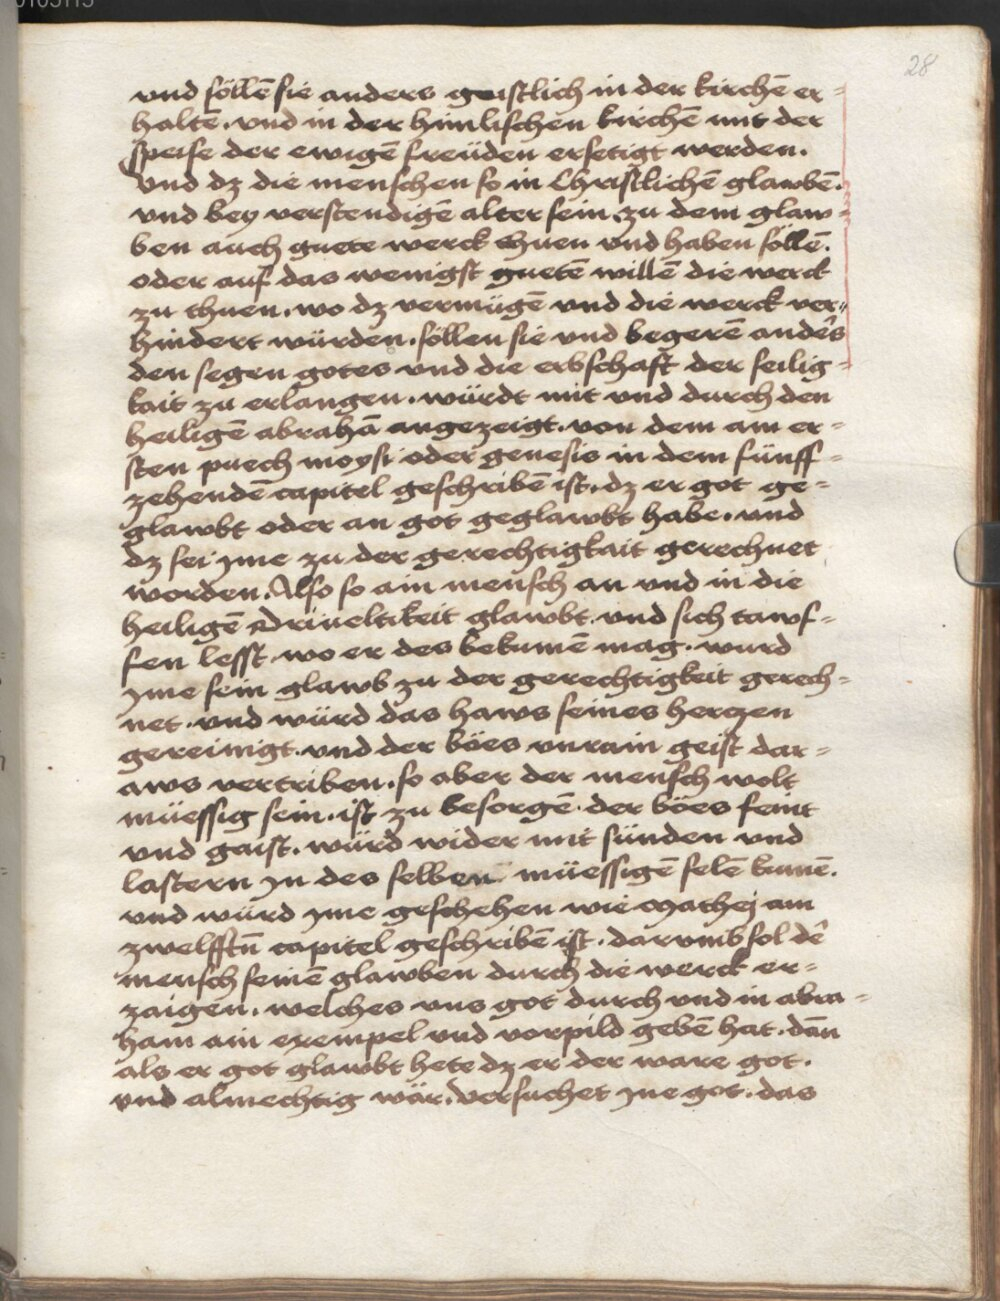 28
vnd söllē sie anders geistlich in der kirchē er=
haltē. vnd in der himlischen kirchē mit der
speise der ewigē freüden ersetigt werden.
Vnd dz die menschen so in Christlichē glawbē.
vnd bey verstendigē alter sein. zu dem glaw=
ben auch guete werck thuen vnd haben söllē.
oder auf das wenigst guetē willē die werck
zu thuen. wo dz vermügē vnd die werck ver=
hindert würden. söllen sie vnd begerē anders
den segen gotes vnd die erbschaft der seilig=
kait zu erlangen. würdt mit vnd durch den
heiligē abrahā angezeigt. von dem am er=
sten puech moysi oder genesis in dem fünff=
zehendē capitel geschribē ist. dz er got ge=
glawbt oder an got geglawbt habe. vnd
dz sei yme zu der gerechtigkait gerechnet
worden. Also so ain mensch an vnd in die
heiligē Driueltikeit glawbt. vnd sich tawf=
fen lesst. wo er des bekumē mag. wurd
yme sein glawb zu der gerechtigkeit gerech=
net. vnd würd das haws seines herczen
gereinigt. vnd der böes vnrain geist dar=
aws vertriben. so aber der mensch wolt
müessig sein. ist zu besorgē. der böes feint
vnd gaist. würd wider mit sünden vnd
lastern yn des selben müessigē selē kumē.
vnd würd yme geschehen wie Mathej am
zwelfftn̄ capitel geschribē ist. darumb sol dē
mensch seinē glawben durch die werck er=
zaigen. welches vns got durch vnd in abra=
ham ain exempel vnd vorpild gebē hat. dān
als er got glawbt hete dz er der ware got.
vnd almechtig wär. versuchet yne got. das